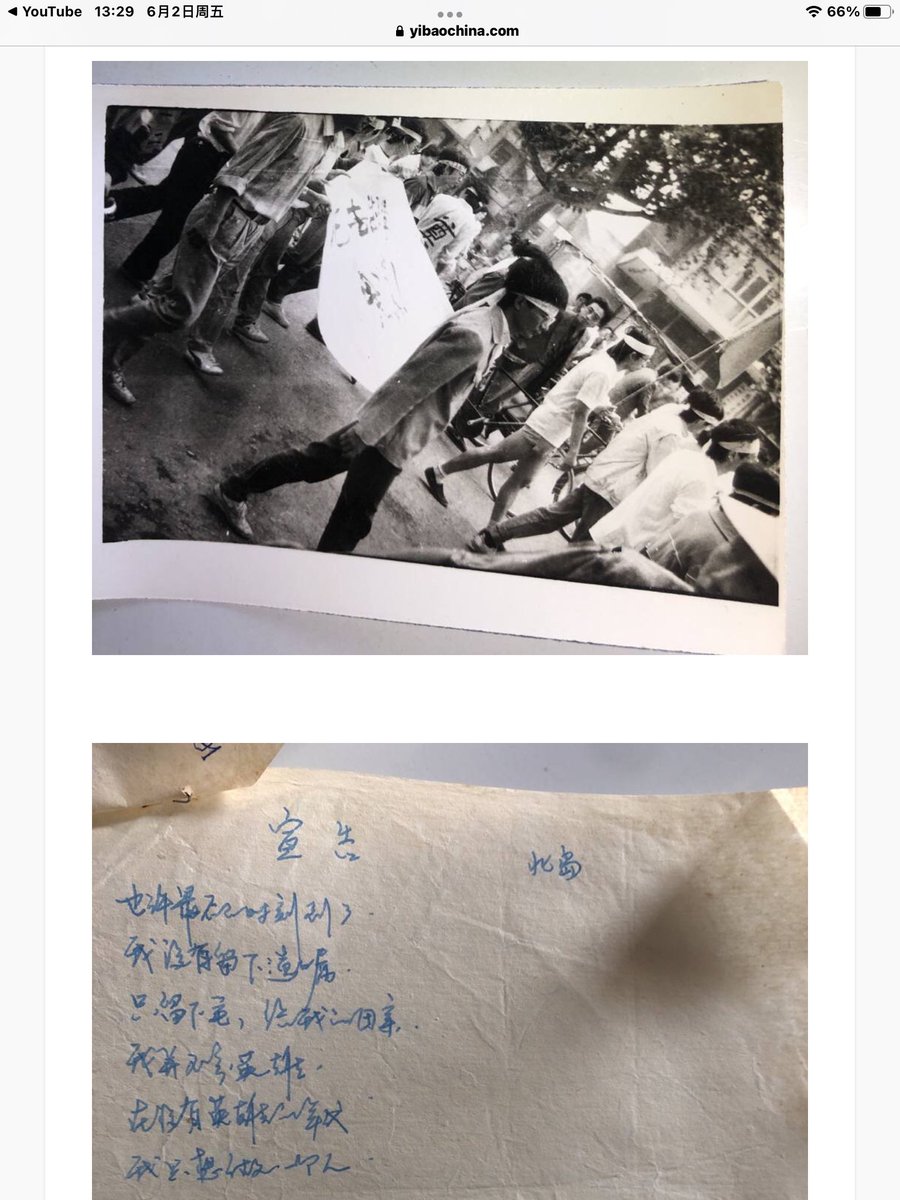 YouTube 13:29 6月2日周五
66%
yibaochina.com
宣告
北岛
也许最后的时刻到了.
我没有留下遗嘱.
只留下笔，给我的母亲.
我并不是英雄.
在没有英雄的年代
我只想做一个人.